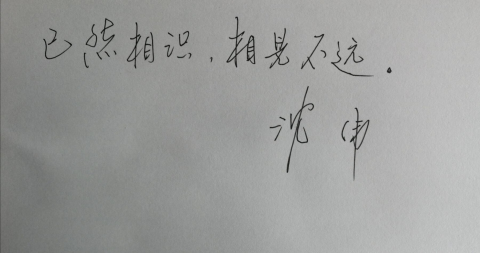 已然相识，相晃不远。
沈伟